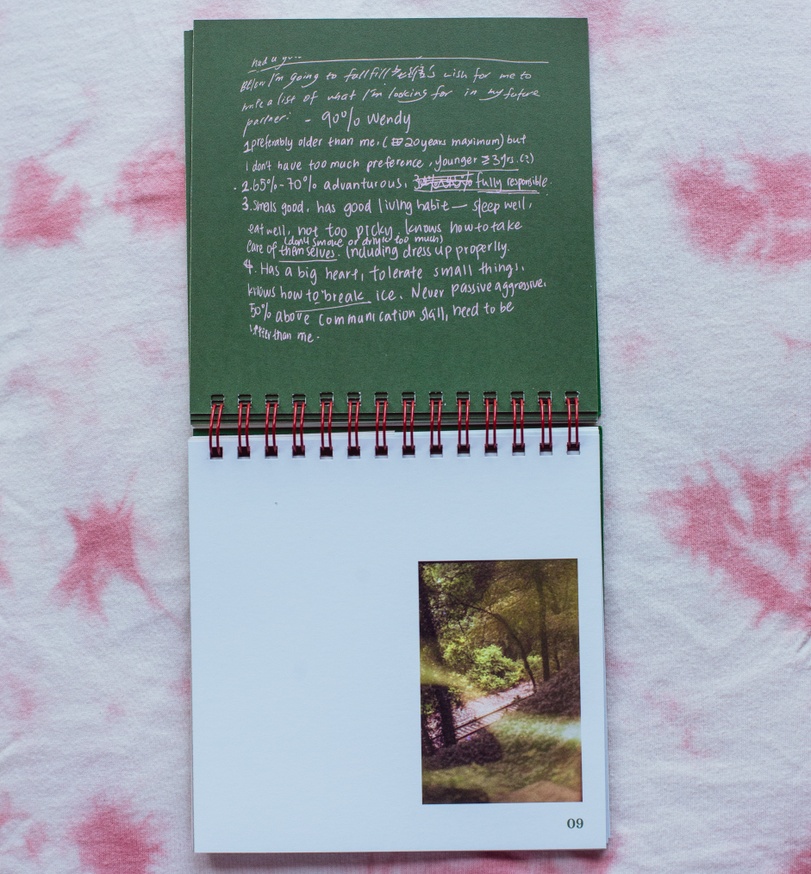 had a
Below I'm going to fullfill 's wish for me to
write a list of what I'm looking for in my future
partner: - 90% Wendy
1 preferably older than me, ( 20 years maximum) but
I don't have too much preference, younger ≥ 3 yrs. (?)
2. 65% - 70% advanturous, fully responsible.
3. Smells good, has good living habit — sleep well,
eat well, not too picky, knows how to take
(don't smoke or drink too much)
care of themselves. Including dress up properlly.
4. Has a big heart, tolerate small things,
knows how to break ice. Never passive aggressive.
50% above communication skill, need to be
than me.
09